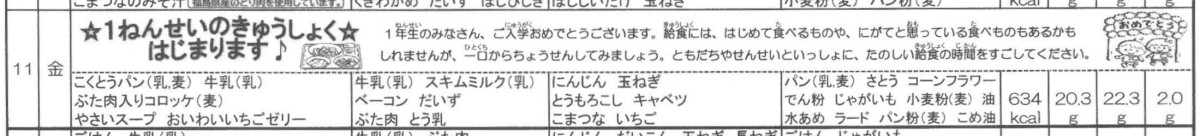 こまつなのみそ汁 福島県産のとり肉を使用しています。 くきわかめ だいず ほしひじき ほししいたけ 玉ねぎ 小麦粉(麦) パン粉(麦) kcal g g g
☆1ねんせいのきゅうしょく☆
はじまります♪
1年生のみなさん、ご入学おめでとうございます。給食には、はじめて食べるものや、にがてと思っている食べものもあるかも
しれませんが、一口からちょうせんしてみましょう。ともだちやせんせいといっしょに、たのしい給食の時間をすごしてください。
おめでとう
11 金
こくとうパン(乳,麦) 牛乳(乳) 牛乳(乳) スキムミルク(乳) にんじん 玉ねぎ パン(乳,麦) さとう コーンフラワー
ぶた肉入りコロッケ(麦) ベーコン だいず とうもろこし キャベツ でん粉 じゃがいも 小麦粉(麦) 油 634 20.3 22.3 2.0
やさいスープ おいわいいちごゼリー ぶた肉 とう乳 こまつな いちご 水あめ ラード パン粉(麦) こめ油 kcal g g g